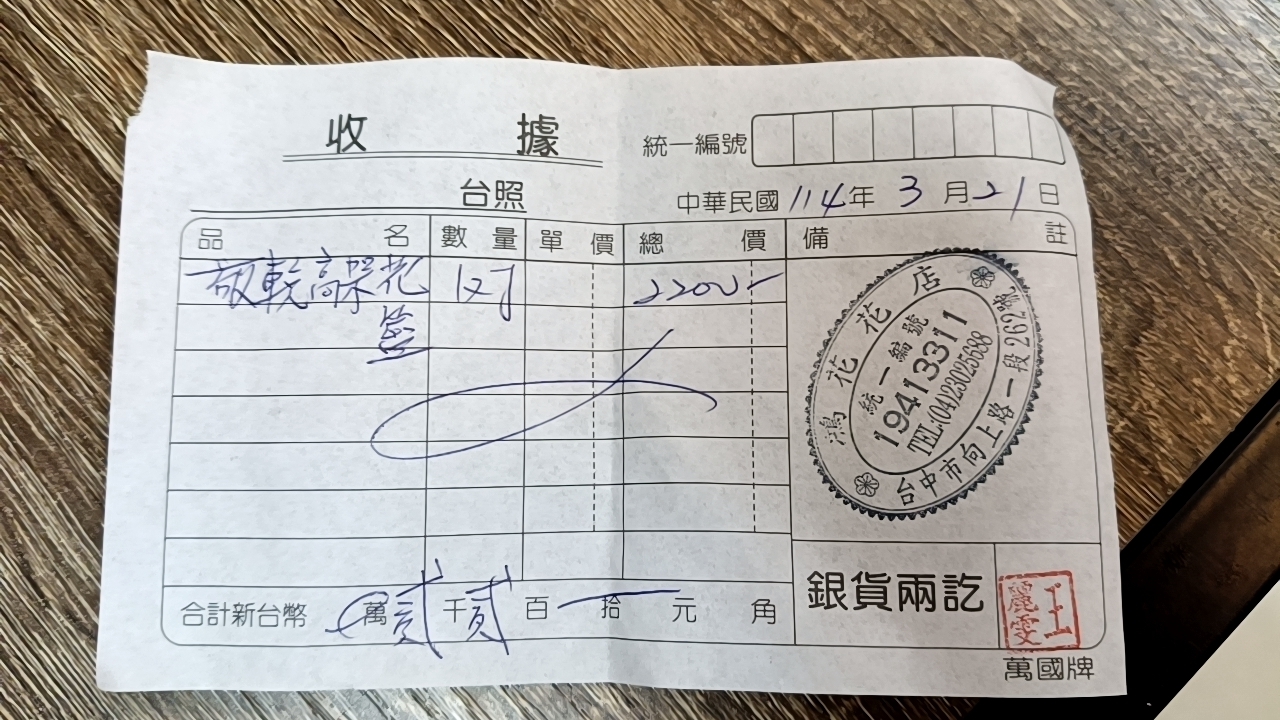 收據
統一編號
台照
中華民國114年3月21日
品名 數量 單價 總價 備註
高架花 1対 2200-
籃
鴻花花店
統一編號
19413311
TEL:(04)23025688
台中市向上路一段262號
合計新台幣 萬貳千貳百拾元角
銀貨兩訖
王麗雯
萬國牌